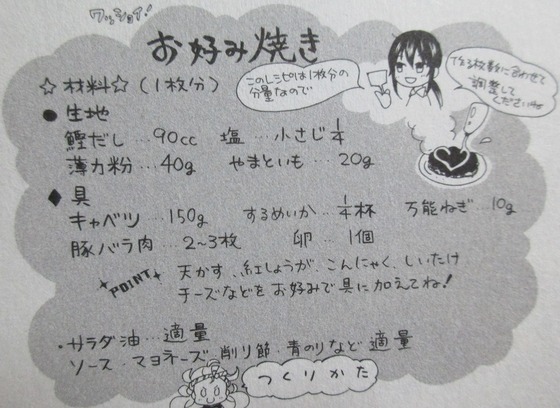 ワッショイ!
お好み焼き
このレシピは1枚分の
分量なので
作る枚数に合わせて
調整して
くださいね
☆材料☆（1枚分）
●生地
鰹だし…90cc 塩…小さじ1/4
薄力粉…40g やまといも…20g
◆具
キャベツ…150g するめいか…1/4杯 万能ねぎ…10g
豚バラ肉…2~3枚 卵…1個
POINT
天かす、紅しょうが、こんにゃく、しいたけ
チーズなどをお好みで具に加えてね!
・サラダ油…適量
ソース・マヨネーズ・削り節・青のりなど適量
つくりかた